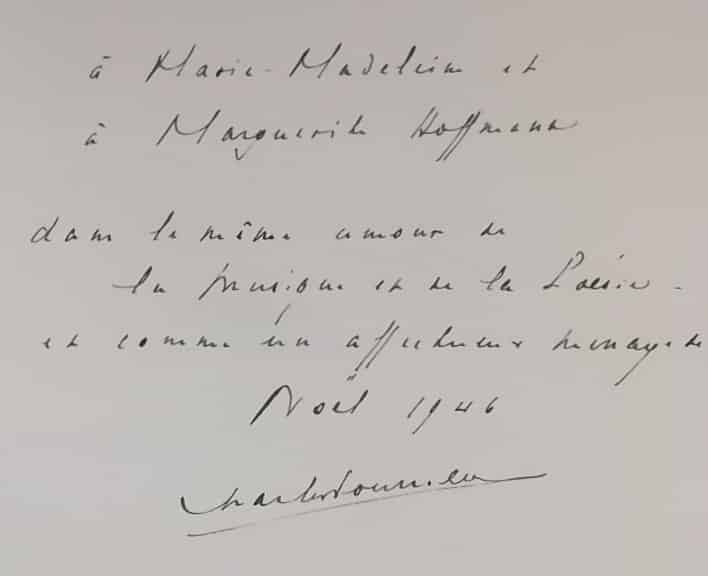 à Marie-Madeleine et
à Marguerite Hoffmann
dans le même amour de
la musique et de la Poésie -
et comme un affectueux message de
Noël 1946